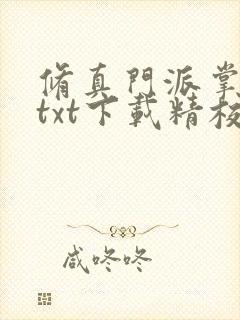 脩真門派掌
txt下載精校
咸咚咚